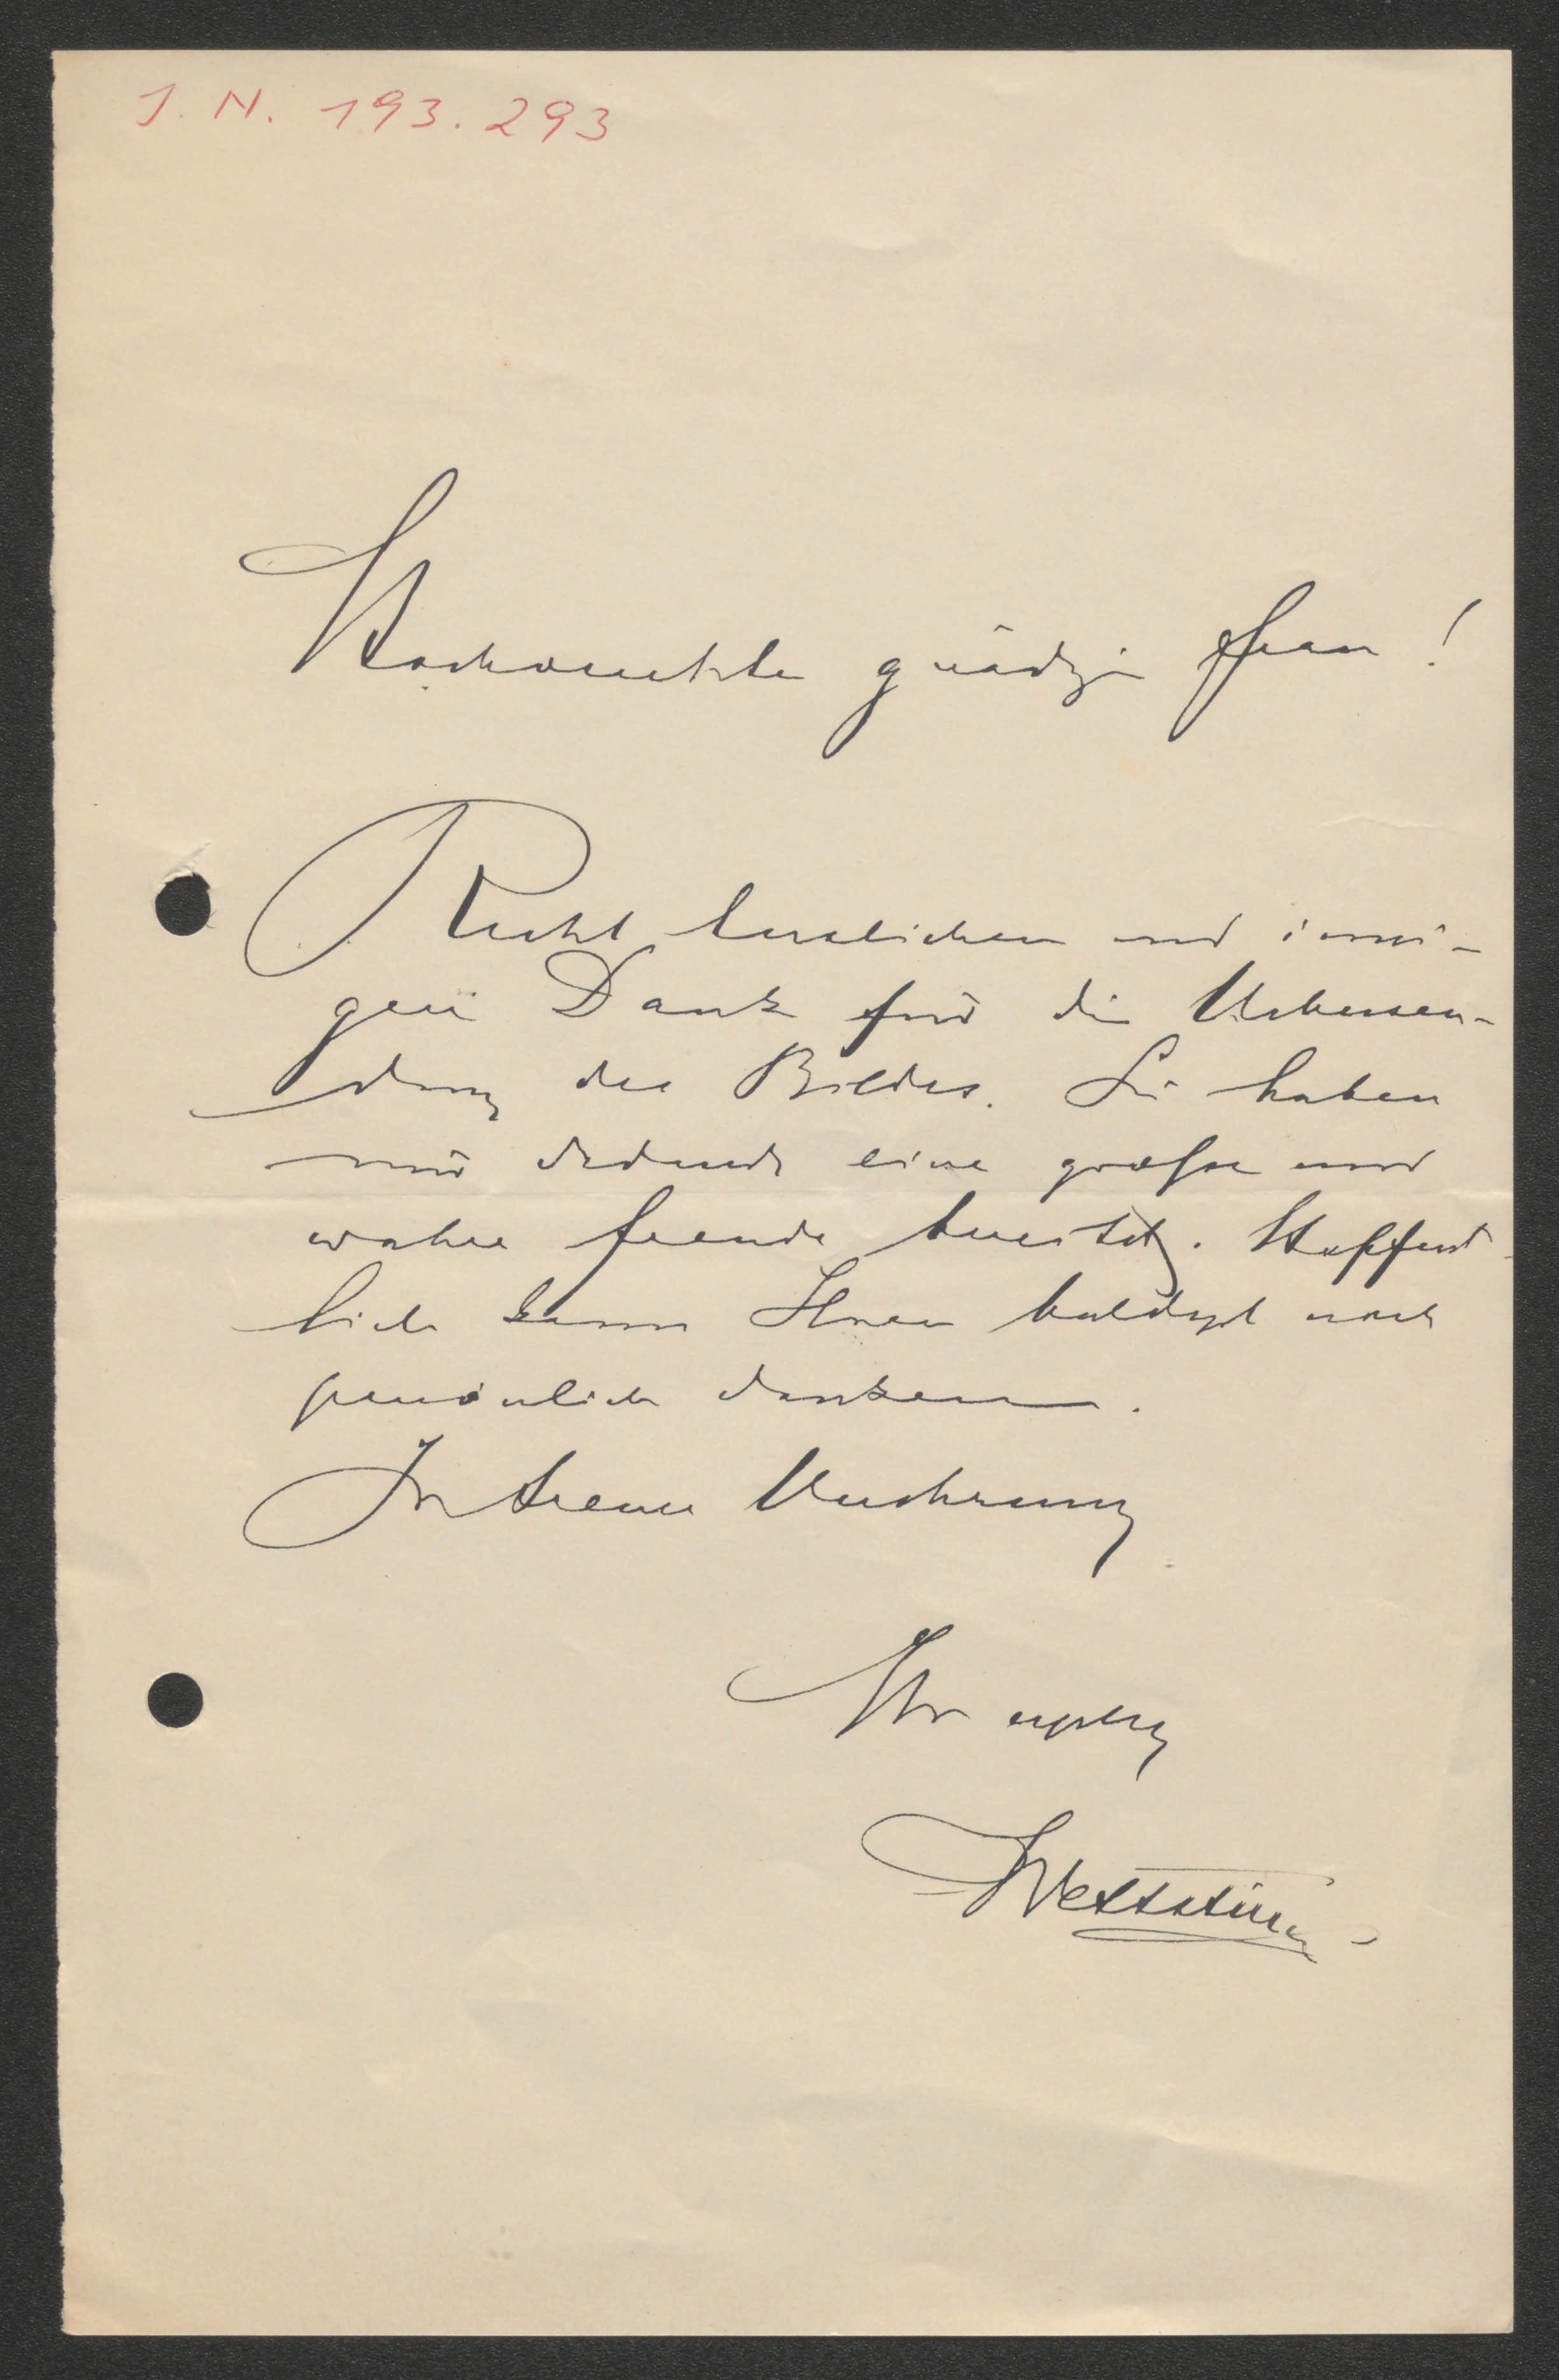 J. N. 193.293
Hochverehrte gnädige Frau!
Recht herzlichen und inni-
gen Dank für die Uebersen-
dung des Bildes. Sie haben
mir dadurch eine große und
wahre Freude bereitet. Hoffent-
lich kann Ihnen baldigst noch
persönlich danken.
In treuer Verehrung
Ihr
Wettstein